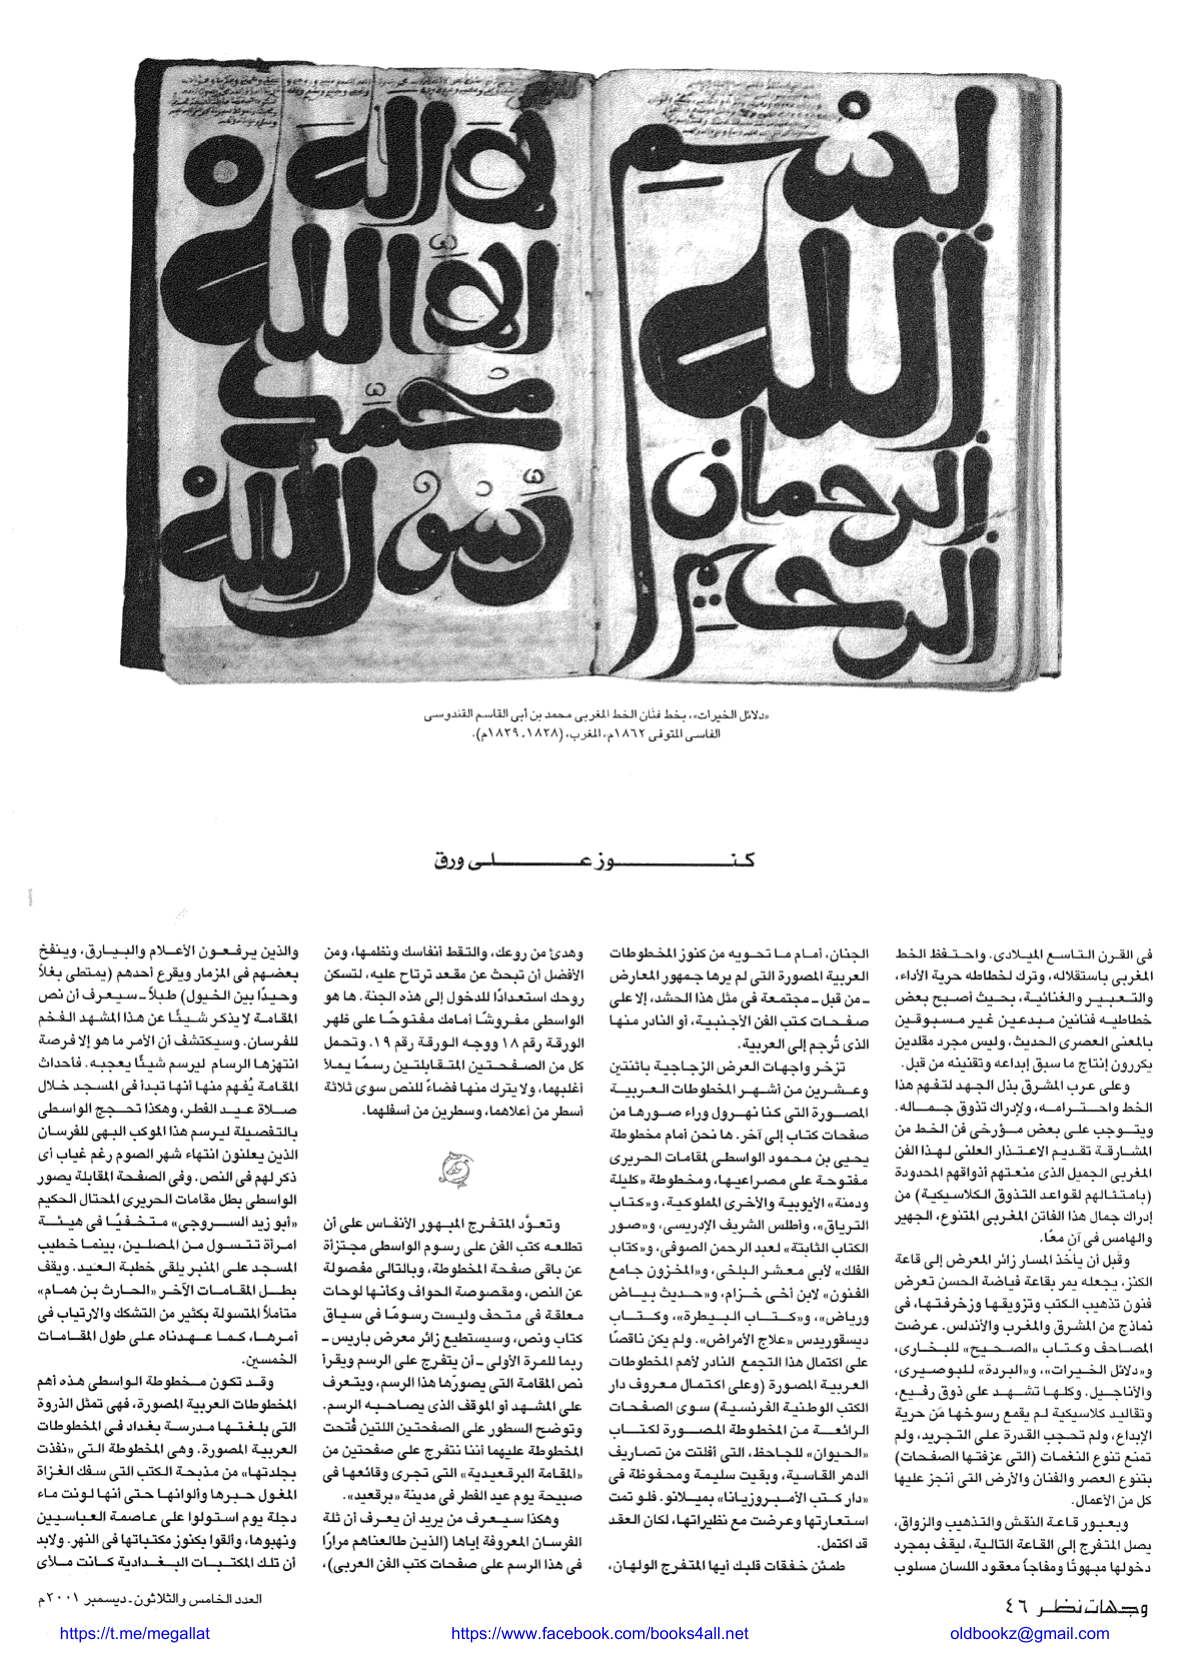 بسم
الله
الرحمان
الرحيم
الله
لا إله إلا الله
محمد
رسول الله
«دلائل الخيرات»، بخط فنّان الخط المغربى محمد بن أبى القاسم القندوسى
الفاسى المتوفى ١٨٦٢م، المغرب، (١٨٢٨ـ ١٨٢٩م).
كنوز على ورق
فى القرن التاسع الميلادى. واحتفظ الخط
المغربى باستقلاله، وترك لخطاطه حرية الأداء،
والتعبير والغنائية، بحيث أصبح بعض
خطاطيه فنانين مبدعين غير مسبوقين
بالمعنى العصرى الحديث، وليس مجرد مقلدين
يكررون إنتاج ما سبق إبداعه وتقنينه من قبل.
وعلى عرب المشرق بذل الجهد لتفهم هذا
الخط واحترامه، ولإدراك تذوق جماله.
ويتوجب على بعض مؤرخى فن الخط من
المشارقة تقديم الاعتذار العلنى لهذا الفن
المغربى الجميل الذى منعتهم أذواقهم المحدودة
(بامتثالهم لقواعد التذوق الكلاسيكية) من
إدراك جمال هذا الفاتن المغربى المتنوع، الجهير
والهامس فى آن معًا.
وقبل أن يأخذ المسار زائر المعرض إلى قاعة
الكنز، يجعله يمر بقاعة فياضة الحسن تعرض
فنون تذهيب الكتب وتزويقها وزخرفتها، فى
نماذج من المشرق والمغرب والأندلس. عرضت
المصاحف وكتاب «الصحيح» للبخارى،
و«دلائل الخيرات»، و«البردة» للبوصيرى،
والأناجيل. وكلها تشهد على ذوق رفيع،
وتقاليد كلاسيكية لم يقمع رسوخها مَن حرية
الإبداع، ولم تحجب القدرة على التجريد، ولم
تمنع تنوع النغمات (التى عزفتها الصفحات)
بتنوع العصر والفنان والأرض التى أنجز عليها
كل من الأعمال.
وبعبور قاعة النقش والتذهيب والزواق،
يصل المتفرج إلى القاعة التالية، ليقف بمجرد
دخولها مبهوتًا ومفاجأ معقود اللسان مسلوب
الجنان، أمام ما تحويه من كنوز المخطوطات
العربية المصورة التى لم يرها جمهور المعارض
ـ من قبل ـ مجتمعة فى مثل هذا الحشد، إلا على
صفحات كتب الفن الأجنبية، أو النادر منها
الذى تُرجم إلى العربية.
تزخر واجهات العرض الزجاجية باثنتين
وعشرين من أشهر المخطوطات العربية
المصورة التى كنا نهرول وراء صورها من
صفحات كتاب إلى آخر. ها نحن أمام مخطوطة
يحيى بن محمود الواسطى لمقامات الحريرى
مفتوحة على مصراعيها، ومخطوطة «كليلة
ودمنة» الأيوبية والأخرى المملوكية، و«كتاب
الترياق»، وأطلس الشريف الإدريسى، و«صور
الكتاب الثابتة» لعبد الرحمن الصوفى، و«كتاب
الفلك» لأبى معشر البلخى، و«المخزون جامع
الفنون» لابن أخى خزام، و«حديث بياض
ورياض»، و«كتاب البيطرة»، وكتاب
ديسقوريدس «علاج الأمراض». ولم يكن ناقصًا
على اكتمال هذا التجمع النادر لأهم المخطوطات
العربية المصورة (وعلى اكتمال معروف دار
الكتب الوطنية الفرنسية) سوى الصفحات
الرائعة من المخطوطة المصورة لكتاب
«الحيوان» للجاحظ، التى أفلتت من تصاريف
الدهر القاسية، وبقيت سليمة ومحفوظة فى
«دار كتب الأمبروزيانا» بميلانو. فلو تمت
استعارتها وعرضت مع نظيراتها، لكان العقد
قد اكتمل.
طمئن خفقات قلبك أيها المتفرج الولهان،
وهدئ من روعك، والتقط أنفاسك ونظمها، ومن
الأفضل أن تبحث عن مقعد ترتاح عليه، لتسكن
روحك استعدادًا للدخول إلى هذه الجنة. ها هو
الواسطى مفروشًا أمامك مفتوحًا على ظهر
الورقة رقم ١٨ ووجه الورقة رقم ١٩. وتحمل
كل من الصفحتين المتقابلتين رسمًا يملأ
أغلبهما، ولا يترك منها فضاءً للنص سوى ثلاثة
أسطر من أعلاهما، وسطرين من أسفلهما.
وتعوَّد المتفرج المبهور الأنفاس على أن
تطلعه كتب الفن على رسوم الواسطى مجتزأة
عن باقى صفحة المخطوطة، وبالتالى مفصولة
عن النص، ومقصوصة الحواف وكأنها لوحات
معلقة فى متحف وليست رسومًا فى سياق
كتاب ونص، وسيستطيع زائر معرض باريس ـ
ربما للمرة الأولى ـ أن يتفرج على الرسم ويقرأ
نص المقامة التى يصورّها هذا الرسم، ويتعرف
على المشهد أو الموقف الذى يصاحبه الرسم.
وتوضح السطور على الصفحتين اللتين فُتحت
المخطوطة عليهما أننا نتفرج على صفحتين من
«المقامة البرقعيدية» التى تجرى وقائعها فى
صبيحة يوم عيد الفطر فى مدينة «برقعيد».
وهكذا سيعرف من يريد أن يعرف أن ثلة
الفرسان المعروفة إياها (الذين طالعناهم مرارًا
فى هذا الرسم على صفحات كتب الفن العربى)،
والذين يرفعون الأعلام والبيارق، وينفخ
بعضهم فى المزمار ويقرع أحدهم (يمتطى بغلاً
وحيدًا بين الخيول) طبلاً ـ سيعرف أن نص
المقامة لا يذكر شيئًا عن هذا المشهد الفخم
للفرسان. وسيكتشف أن الأمر ما هو إلا فرصة
انتهزها الرسام ليرسم شيئًا يعجبه. فأحداث
المقامة يُفهم منها أنها تبدأ فى المسجد خلال
صلاة عيد الفطر، وهكذا تحجج الواسطى
بالتفصيلة ليرسم هذا الموكب البهى للفرسان
الذين يعلنون انتهاء شهر الصوم رغم غياب أى
ذكر لهم فى النص. وفى الصفحة المقابلة يصور
الواسطى بطل مقامات الحريرى المحتال الحكيم
«أبو زيد السروجى» متخفيًا فى هيئة
امرأة تتسول من المصلين، بينما خطيب
المسجد على المنبر يلقى خطبة العيد. ويقف
بطل المقامات الآخر «الحارث بن همام»
متأملاً المتسولة بكثير من التشكك والارتياب فى
أمرها، كما عهدناه على طول المقامات
الخمسين.
وقد تكون مخطوطة الواسطى هذه أهم
المخطوطات العربية المصورة، فهى تمثل الذروة
التى بلغتها مدرسة بغداد فى المخطوطات
العربية المصورة. وهى المخطوطة التى «نفذت
بجلدتها» من مذبحة الكتب التى سفك الغزاة
المغول حبرها وألوانها حتى أنها لونت ماء
دجلة يوم استولوا على عاصمة العباسيين
ونهبوها، وألقوا بكنوز مكتباتها فى النهر. ولابد
أن تلك المكتبات البغدادية كانت ملأى
وجهات نظر ٤٦
العدد الخامس والثلاثون ـ ديسمبر ٢٠٠١م
https://t.me/megallat
https://www.facebook.com/books4all.net
oldbookz@gmail.com